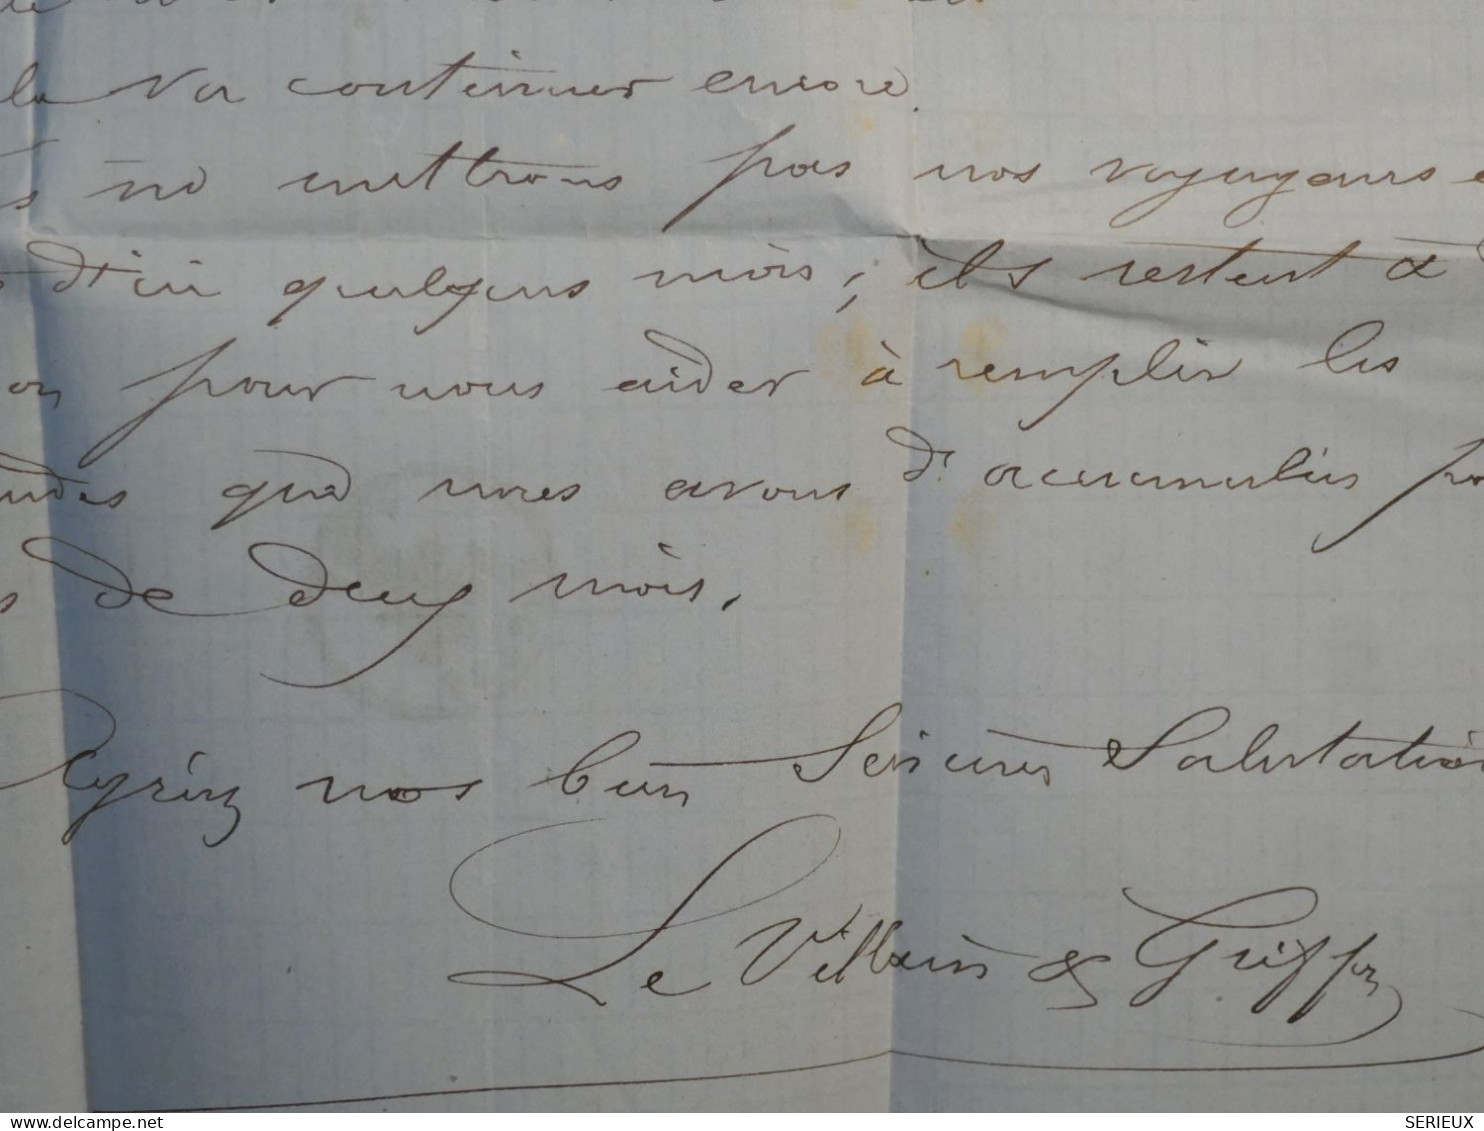 la va continuer encore.
ne mettrons pas nos voyageurs e
d'ici quelques mois; ils restent à
on pour nous aider à remplir les
ndes que nous avons d'accumulées po
s de deux mois.
Agréez nos bien sincères Salutation
Le Villain & Griffon
delcampe.net
SERIEUX